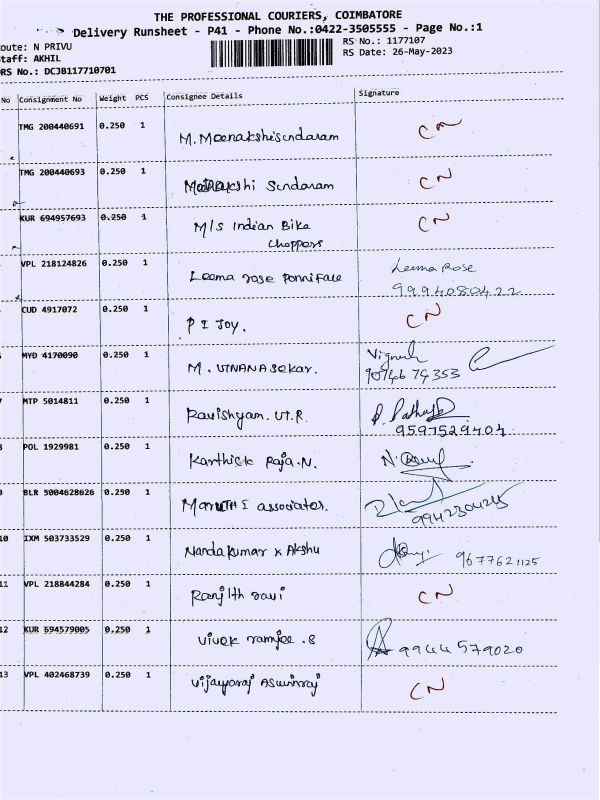 THE PROFESSIONAL COURIERS, COIMBATORE
Delivery Runsheet - P41 - Phone No.:0422-3505555 - Page No.:1
oute: N PRIVU
taff: AKHIL
RS No.: DCJB117710701
RS No.: 1177107
RS Date: 26-May-2023
No Consignment No Weight PCS Consignee Details Signature
TMG 200440691 0.250 1 M. Meenakshisundaram CN
TMG 200440693 0.250 1 Sundaram CN
KUR 694957693 0.250 1 M/s Indian Bike Choppers CN
VPL 218124826 0.250 1 Leema rose Ponniface Leema Rose
9994080422
CUD 4917072 0.250 1 P I Joy. CN
MYD 4170090 0.250 1 M. Vignesh
9074674353
MTP 5014811 0.250 1 Ravishyam. VT.R
9597529404
POL 1929981 0.250 1 Karthick Raja.N.
BLR 5004628626 0.250 1 Maruthi associates.
10 IXM 503733529 0.250 1 Nandakumar x Akshu 9677621125
11 VPL 218844284 0.250 1 Ranjith ravi CN
12 KUR 694579005 0.250 1 Vivek ramjee .S 9944579020
13 VPL 402468739 0.250 1 Vijayaraj Aswinraj CN